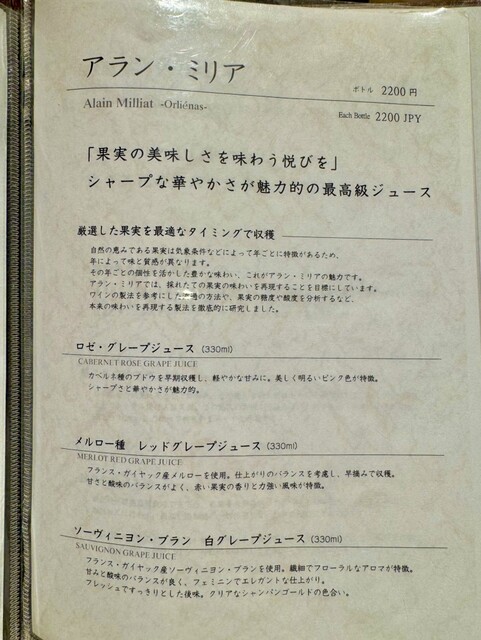 アラン・ミリア
ボトル 2200 円
Alain Milliat -Orliénas-
Each Bottle 2200 JPY
「果実の美味しさを味わう悦びを」
シャープな華やかさが魅力的の最高級ジュース
厳選した果実を最適なタイミングで収穫
自然の恵みである果実は気象条件などによって年ごとに特徴があるため、
年によって味と質感が異なります。
その年ごとの個性を活かした豊かな味わい、これがアラン・ミリアの魅力です。
アラン・ミリアでは、採れたての果実の味わいを再現することを目標にしています。
ワインの製法を参考にした濾過の方法や、果実の糖度や酸度を分析するなど、
本来の味わいを再現する製法を徹底的に研究しました。
ロゼ・グレープジュース (330ml)
CABERNET ROSE GRAPE JUICE
カベルネ種のブドウを早期収穫し、軽やかな甘みに。美しく明るいピンク色が特徴。
シャープさと華やかさが魅力的。
メルロー種 レッドグレープジュース (330ml)
MERLOT RED GRAPE JUICE
フランス・ガイヤック産メルローを使用。仕上がりのバランスを考慮し、早摘みで収穫。
甘さと酸味のバランスがよく、赤い果実の香りと力強い風味が特徴。
ソーヴィニヨン・ブラン 白グレープジュース (330ml)
SAUVIGNON GRAPE JUICE
フランス・ガイヤック産ソーヴィニヨン・ブランを使用。繊細でフローラルなアロマが特徴。
甘みと酸味のバランスが良く、フェミニンでエレガントな仕上がり。
フレッシュですっきりとした後味。クリアなシャンパンゴールドの色合い。